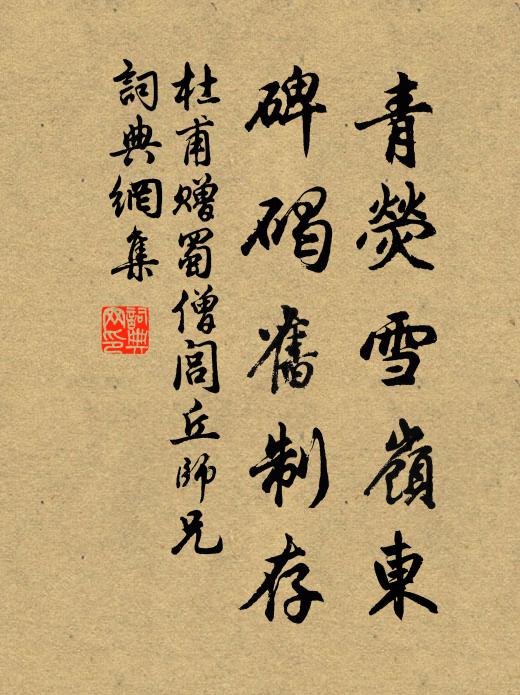 青熒雪嶺東
碑碣舊制存
杜甫贈蜀僧閭丘師兄
詞典網集
詞典網印